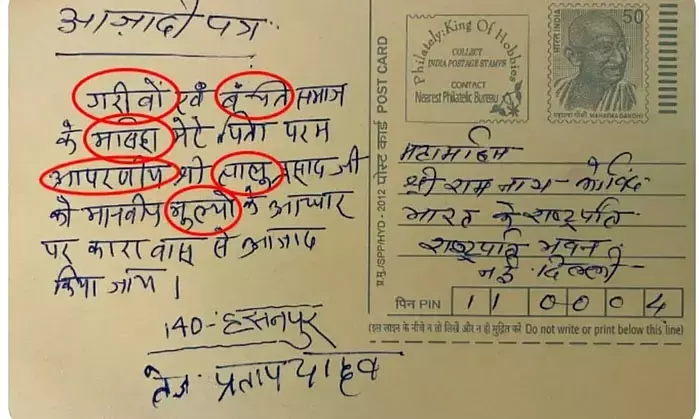 आज़ादी पत्र
गरीबों एवं बंचित समाज
के मासिहा मेरे पिता परम
आपरणीय श्री लालू प्रसाद जी
को मानवीय मुल्यों के आधार
पर कारावास से आजाद
किया जाय।
140-हसनपुर
तेज प्रताप यादव
Philately: King Of Hobbies
COLLECT
INDIA POSTAGE STAMPS
CONTACT
Nearest Philatelic Bureau
भारत INDIA
50
महात्मा गाँधी MAHATMA GANDHI
प्र.मु./SPP/HYD - 2012 पोस्ट कार्ड POST CARD
महामहिम
श्री राम नाथ कोविंद
भारत के राष्ट्रपति
राष्ट्रपति भवन
नई दिल्ली
पिन PIN 110004
(इस लाइन के नीचे न तो लिखें और न ही मुद्रित करें Do not write or print below this line)